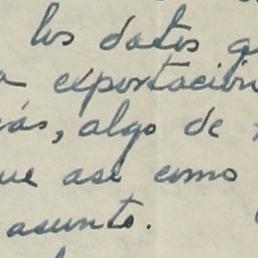 los datos
exportación
algo de
que así como
asunto.